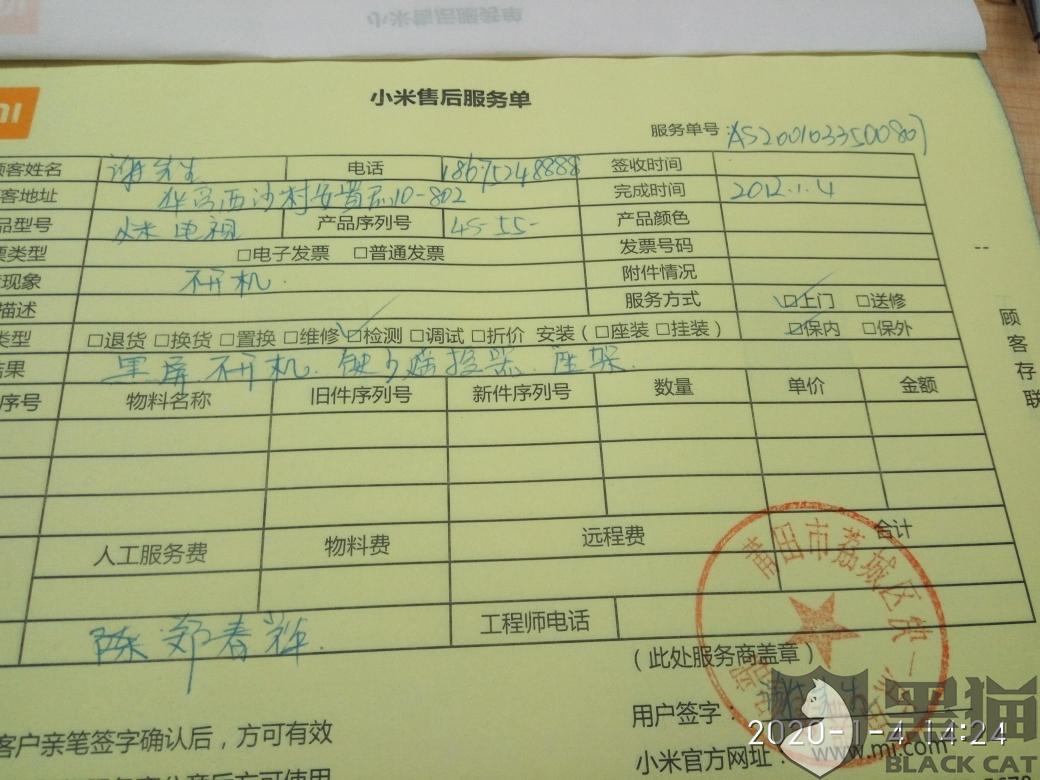 小米售后服务单
小米售后服务单
服务单号 AS200103350080
顾客姓名 谢先生 电话 18675248888 签收时间
客地址 10-802 完成时间 2012.1.4
品型号 小米电视 产品序列号 4S-55- 产品颜色
票类型 □电子发票 □普通发票 发票号码
现象 不开机. 附件情况
描述 服务方式 □上门 □送修
类型 □退货 □换货 □置换 □维修 □检测 □调试 □折价 安装(□座装 □挂装) □保内 □保外
结果 黑屏.不开机.缺少遥控器.座架.
序号 物料名称 旧件序列号 新件序列号 数量 单价 金额
人工服务费 物料费 远程费 合计
陈郑春 工程师电话
(此处服务商盖章)
莆田市荔城区
客户亲笔签字确认后,方可有效
用户签字:
2020-1-4 14:24
小米官方网址:www.mi.com
顾客存联
黑猫
BLACK CAT